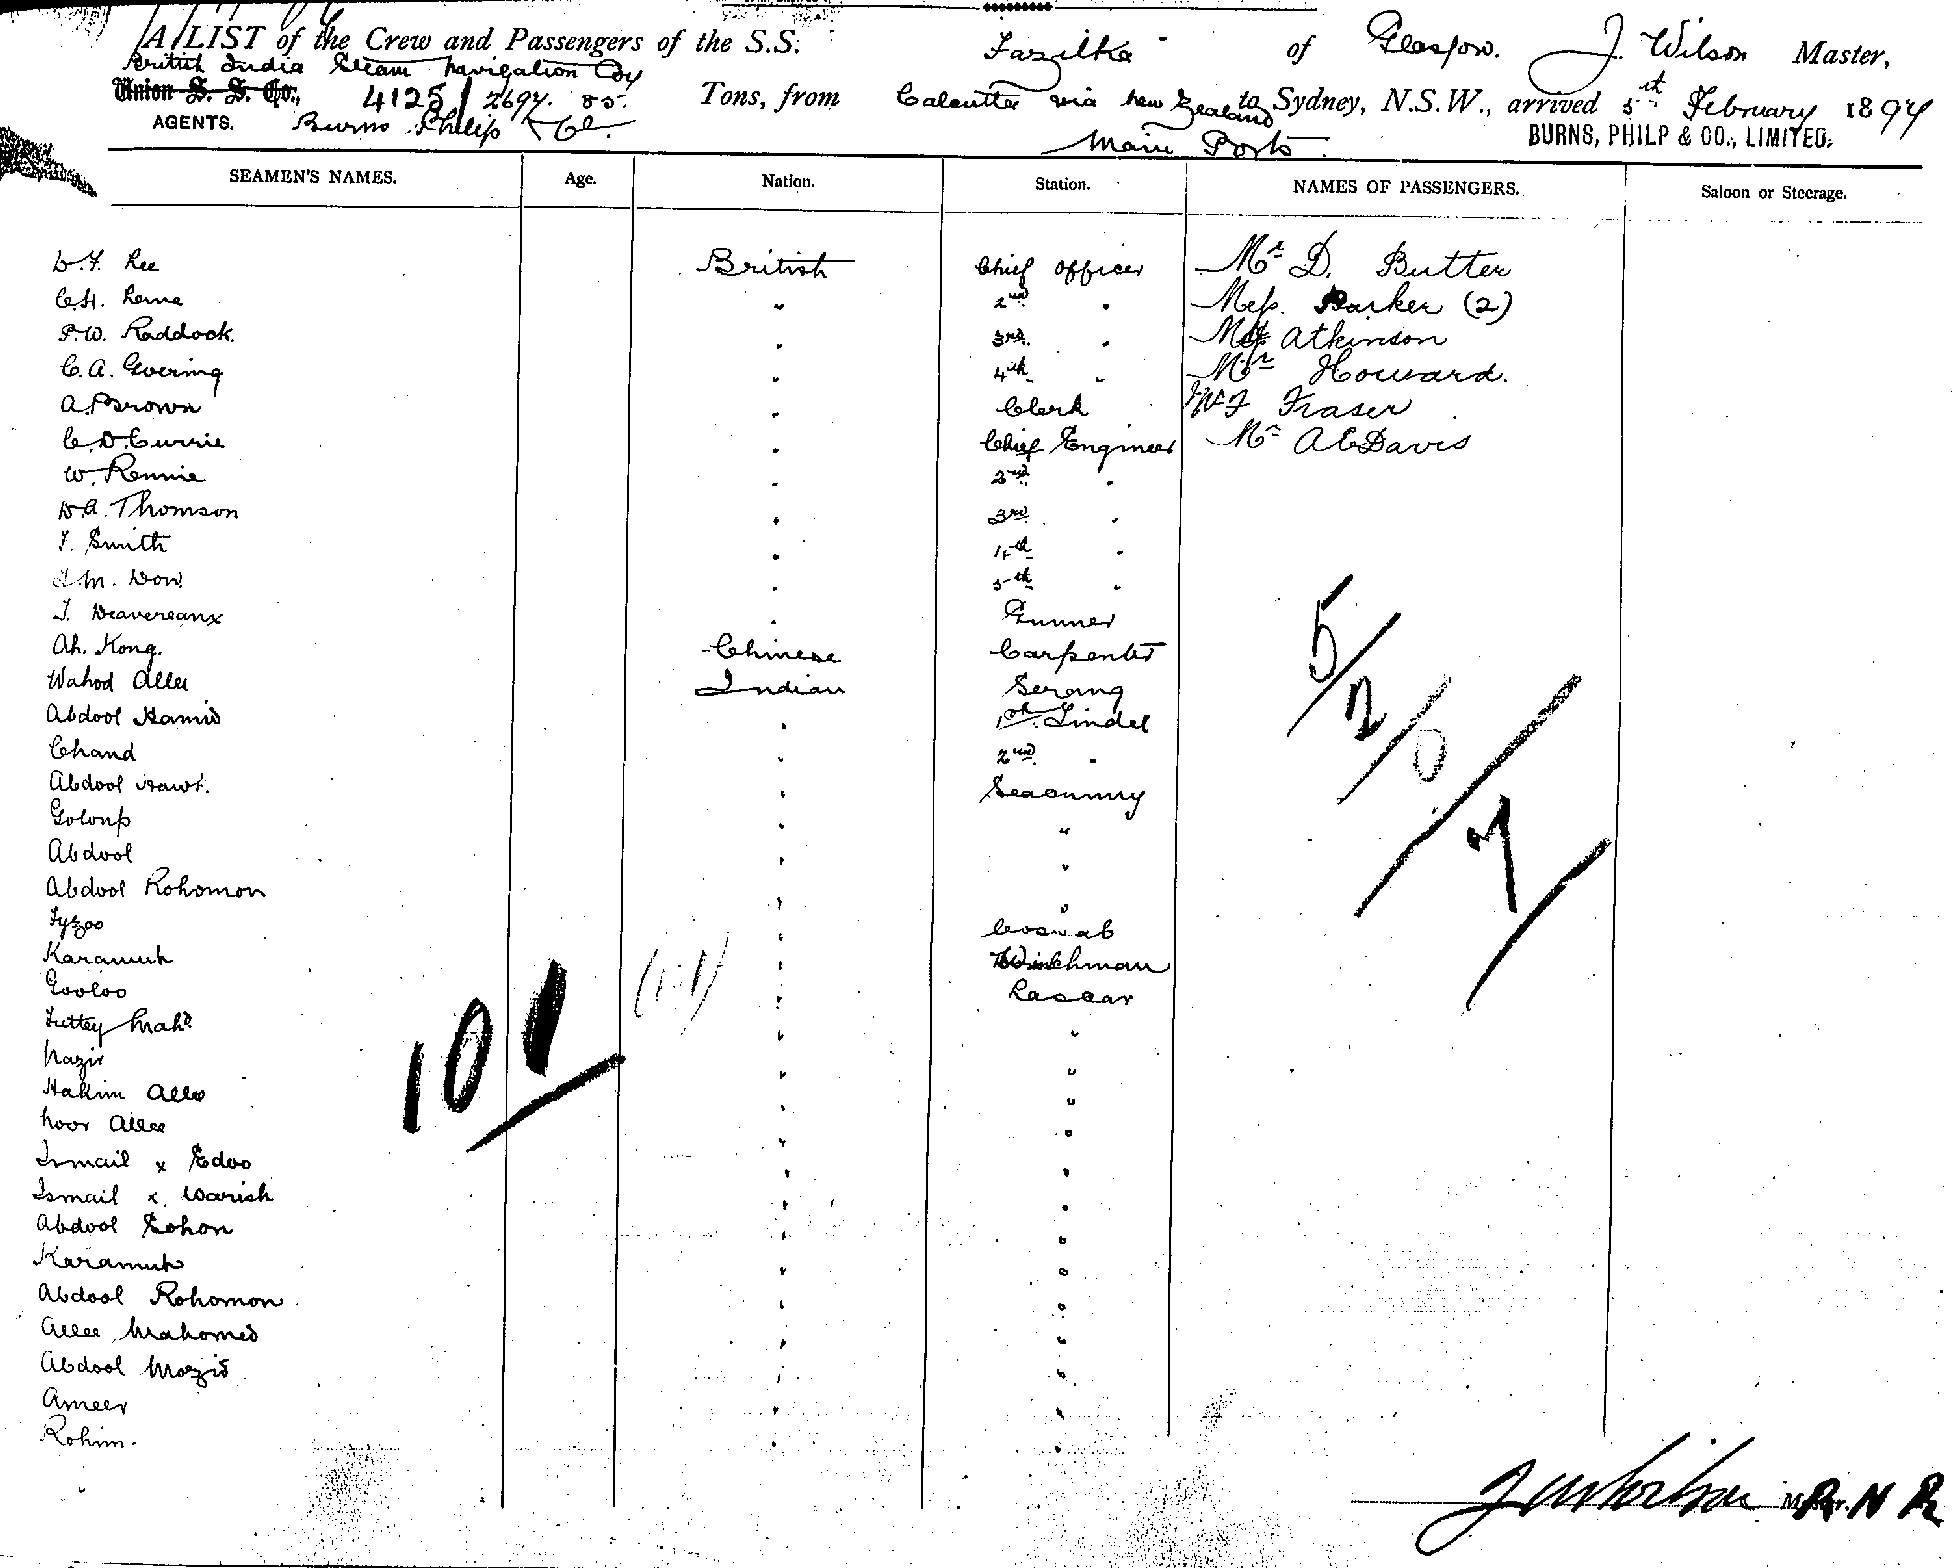 A LIST of the Crew and Passengers of the S.S. Fazilka of Glasgow. J. Wilson Master,
British India Steam Navigation Coy
Union S. S. Co., 4125/2697. 85. Tons, from Calcutta via New Zealand to Sydney, N.S.W., arrived 5th February 1897
AGENTS. Burns Philip & Co. Main Ports. BURNS, PHILP & CO., LIMITED.
SEAMEN'S NAMES. Age. Nation. Station. NAMES OF PASSENGERS. Saloon or Steerage.
W.F. Lee British Chief Officer Mr D. Butter
C.H. " 2nd " Mess. Barker (2)
P.W. Raddock. " 3rd " Atkinson
C.A. Goering " 4th " Mr Howard.
A. Brown " Clerk Fraser
C.D. Currie " Chief Engineer Mr A C Davis
W. Rennie " 2nd "
D.A. Thomson " 3rd "
T. Smith " 4th "
M. Dow " 5th "
T. Deavereaux " Gunner
Ah. Kong. Chinese Carpenter
Wahod Allee Indian Serang
Abdool Hamid " 1st Tindel
Chand " 2nd "
Abdool " Seacunny
Goloup " "
Abdool " "
Abdool Rohomon " "
Fyzoo " Cossab
Karamuth " Winchman
Gooloo " Lascar
Futtey Mahd " "
Nazir " "
Hakim Allee " "
Noor Allee " "
Ismail x Edoo " "
Ismail x Warish " "
Abdool " "
Karamuth " "
Abdool Rohomon " "
Allee Mahomed " "
Abdool Mozid " "
Ameer " "
Rohim. " "
5/2/0/7
101
Wilson Master. R N R